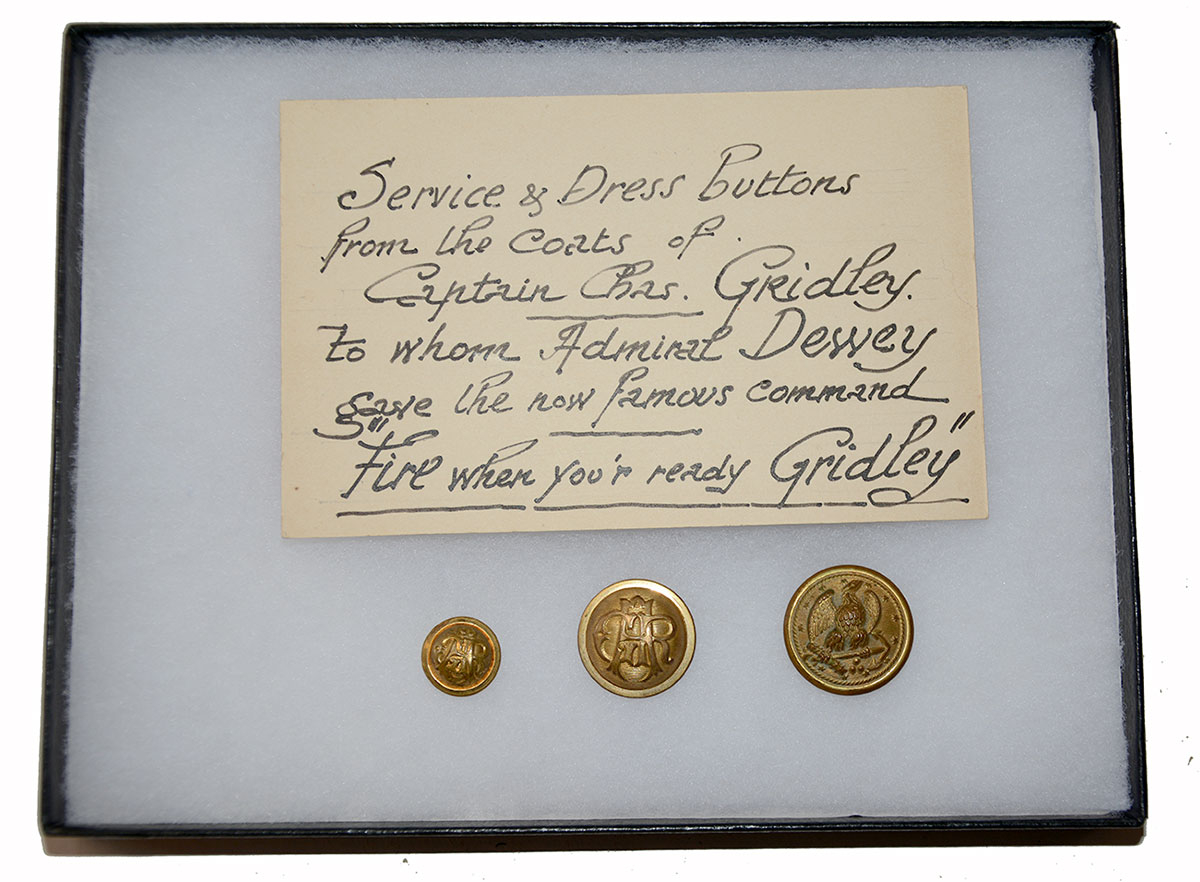 Service & Dress Buttons
from the coats of
Captain Chas. Gridley.
to whom Admiral Dewey
gave the now famous command
"Fire when you'r ready Gridley"